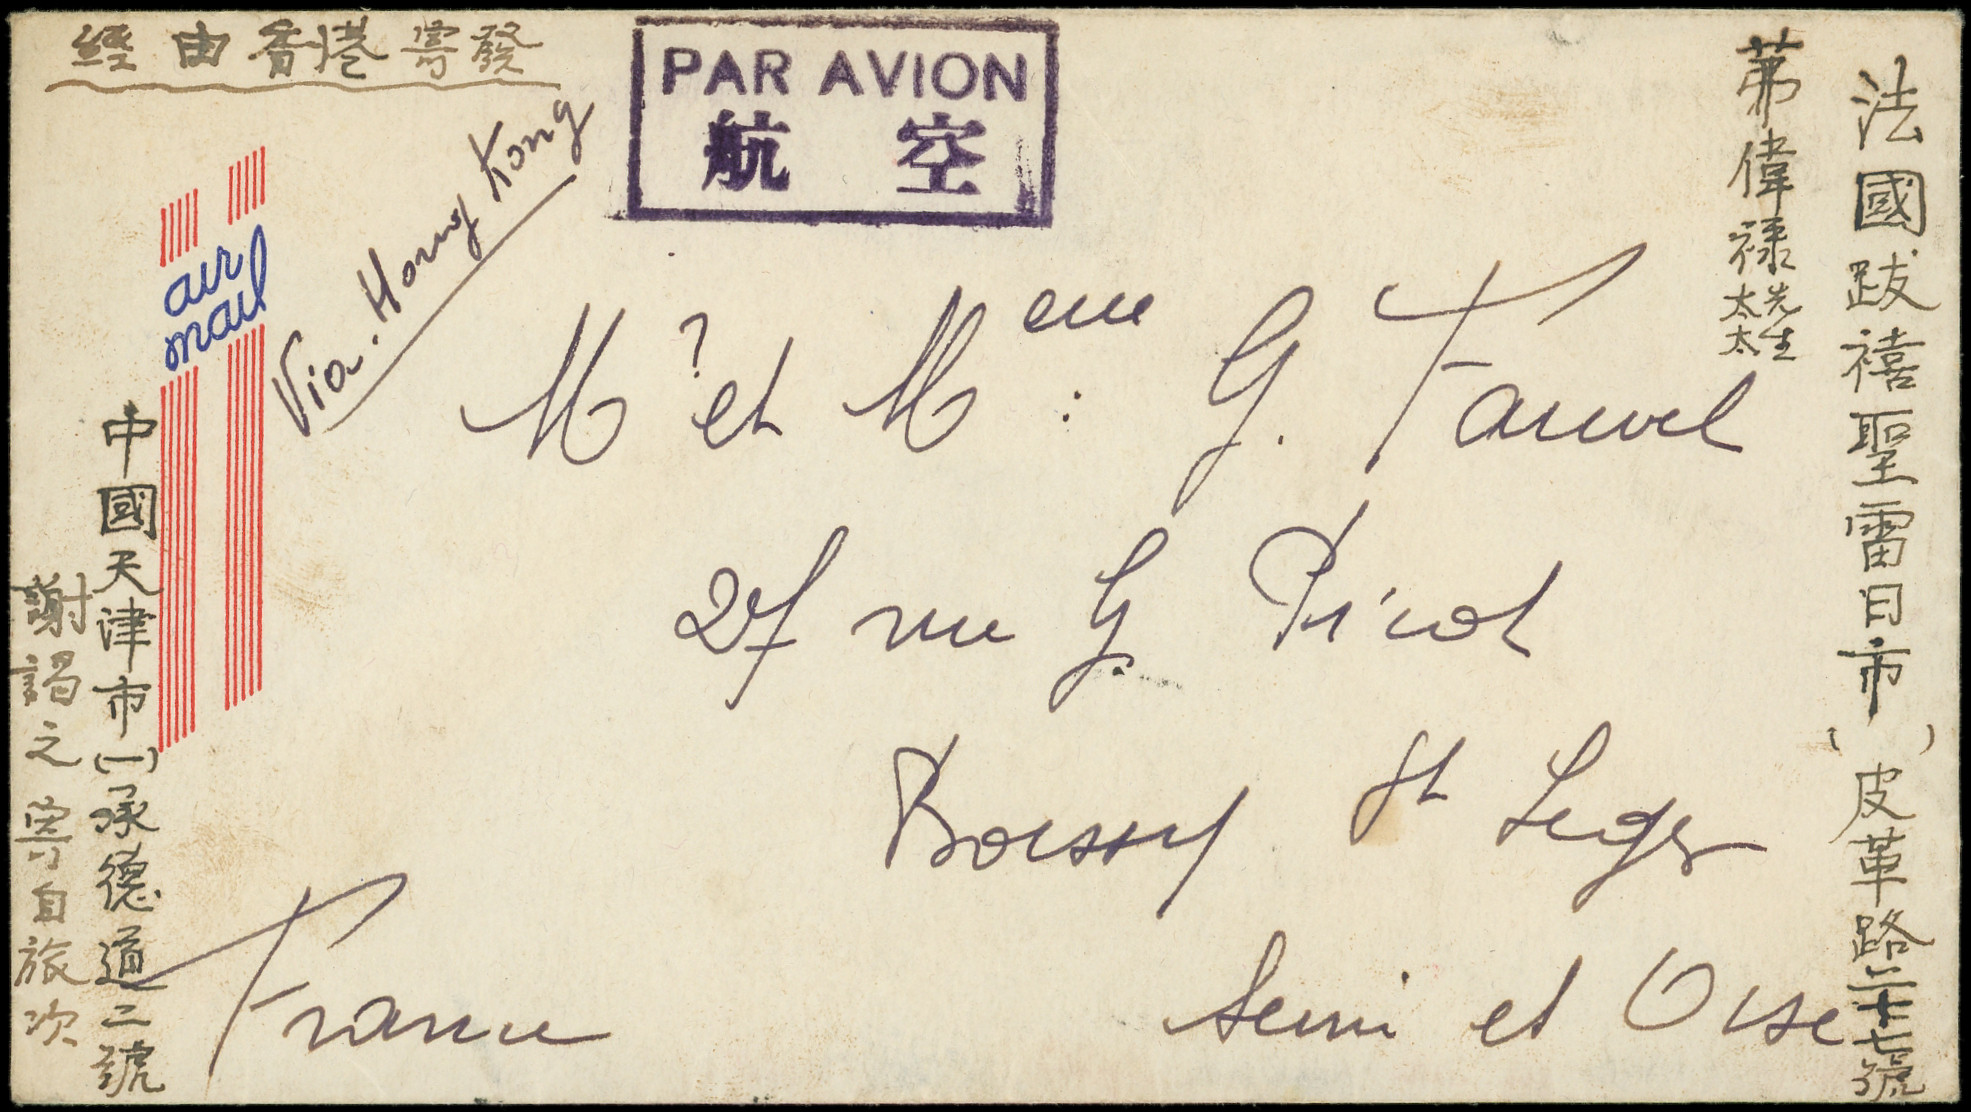 經由香港寄發
PAR AVION
航空
Via. Hong Kong
air
mail
Mr et Mme : G. Fauvel
27 rue G. Picot
Boissy St Leger
Seine et Oise
France
法國跋禧聖雷日市(皮革路二十七號)
茀偉祿先生太太
中國天津市(一)承德道二號
謝謁之寄自旅次